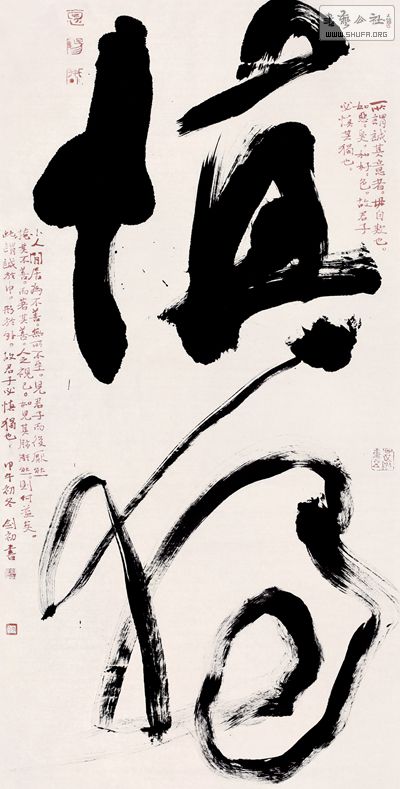 慎獨
所謂誠其意者。毋自欺也。
如惡臭。如好好色。故君子
必慎其獨也。
小人閒居為不善。無所不至。見君子而後厭然
掩其不善。而著其善。人之視己。如見其肺肝然。則何益矣。
此謂誠於中。形於外。故君子必慎獨也。甲午初冬 書
WWW.SHUFA.ORG